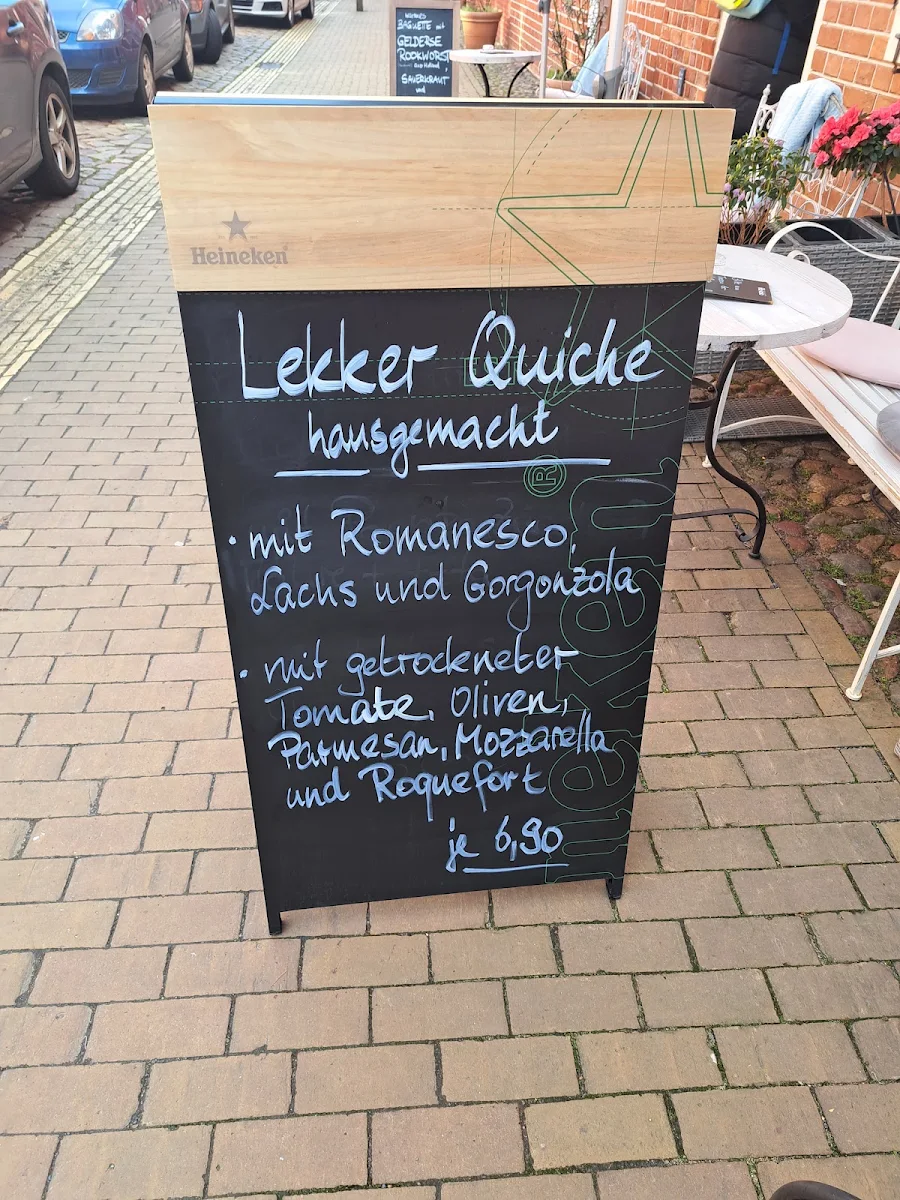 BAGUETTE mit
GELDERSE
ROOKWORST
SAUERKRAUT
und
Heineken
Lekker Quiche
hausgemacht
· mit Romanesco,
Lachs und Gorgonzola
· mit getrockneter
Tomate, Oliven,
Parmesan, Mozzarella
und Roquefort
je 6,90